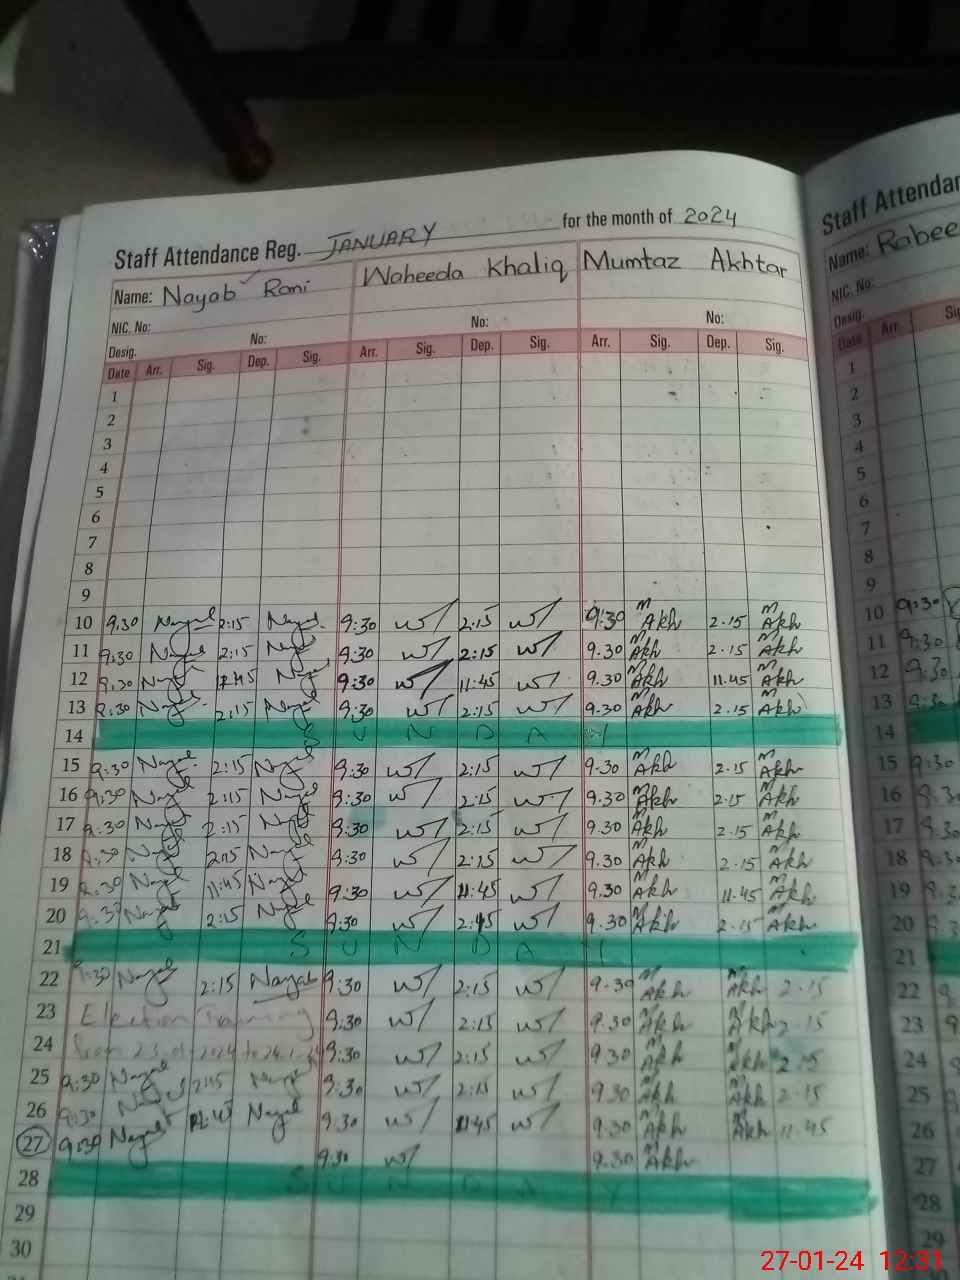 Staff Attendance Reg. JANUARY for the month of 2024
Name: Nayab Rani Waheeda Khaliq Mumtaz Akhtar
NIC. No:
No: No: No:
Desig.
Date Arr. Sig. Dep. Sig. Arr. Sig. Dep. Sig. Arr. Sig. Dep. Sig.
1
2
3
4
5
6
7
8
9
10 9:30 Nayab 2:15 Nayab 9:30 W 2:15 W 9:30 M Akh 2.15 M Akh
11 9:30 Nayab 2:15 Nayab 9:30 W 2:15 W 9.30 M Akh 2.15 M Akh
12 9:30 Nayab 11:45 Nayab 9:30 W 11:45 W 9.30 M Akh 11.45 M Akh
13 9:30 Nayab 2:15 Nayab 9:30 W 2:15 W 9.30 M Akh 2.15 M Akh
14 S U N D A Y
15 9:30 Nayab 2:15 Nayab 9:30 W 2:15 W 9.30 M Akh 2.15 M Akh
16 9:30 Nayab 2:15 Nayab 9:30 W 2:15 W 9.30 M Akh 2.15 M Akh
17 9:30 Nayab 2:15 Nayab 9:30 W 2:15 W 9.30 M Akh 2.15 M Akh
18 9:30 Nayab 2:15 Nayab 9:30 W 2:15 W 9.30 M Akh 2.15 M Akh
19 9:30 Nayab 11:45 Nayab 9:30 W 11:45 W 9.30 M Akh 11.45 M Akh
20 9:30 Nayab 2:15 Nayab 9:30 W W 9.30 M Akh 2.15 M Akh
21 S U N D A Y
22 9:30 Nayab 2:15 Nayab 9:30 W 2:15 W 9.30 M Akh M Akh 2.15
23 Election Training 9:30 W 2:15 W 9.30 M Akh M Akh 2.15
24 from 23.01.2024 to 24.1.24 9:30 W 2:15 W 9.30 M Akh M Akh 2.15
25 9:30 Nayab 2:15 Nayab 9:30 W 2:15 W 9.30 M Akh M Akh 2.15
26 9:30 Nayab 11:45 Nayab 9:30 W 11:45 W 9.30 M Akh M Akh 11.45
27 9:30 Nayab 9:30 W 9.30 M Akh
28 S U N D A Y
29
30
Staff Attendan
Name: Rabee
NIC. No:
Desig.
Date Arr. Sig
1
2
3
4
5
6
7
8
9
10 9:30
11 9:30
12 9:30
13 9:30
14
15 9:30
16 9:30
17 9:30
18 9:30
19 9:30
20 9:30
21
22
23
24
25
26
27
28
29
30
27-01-24 12:31